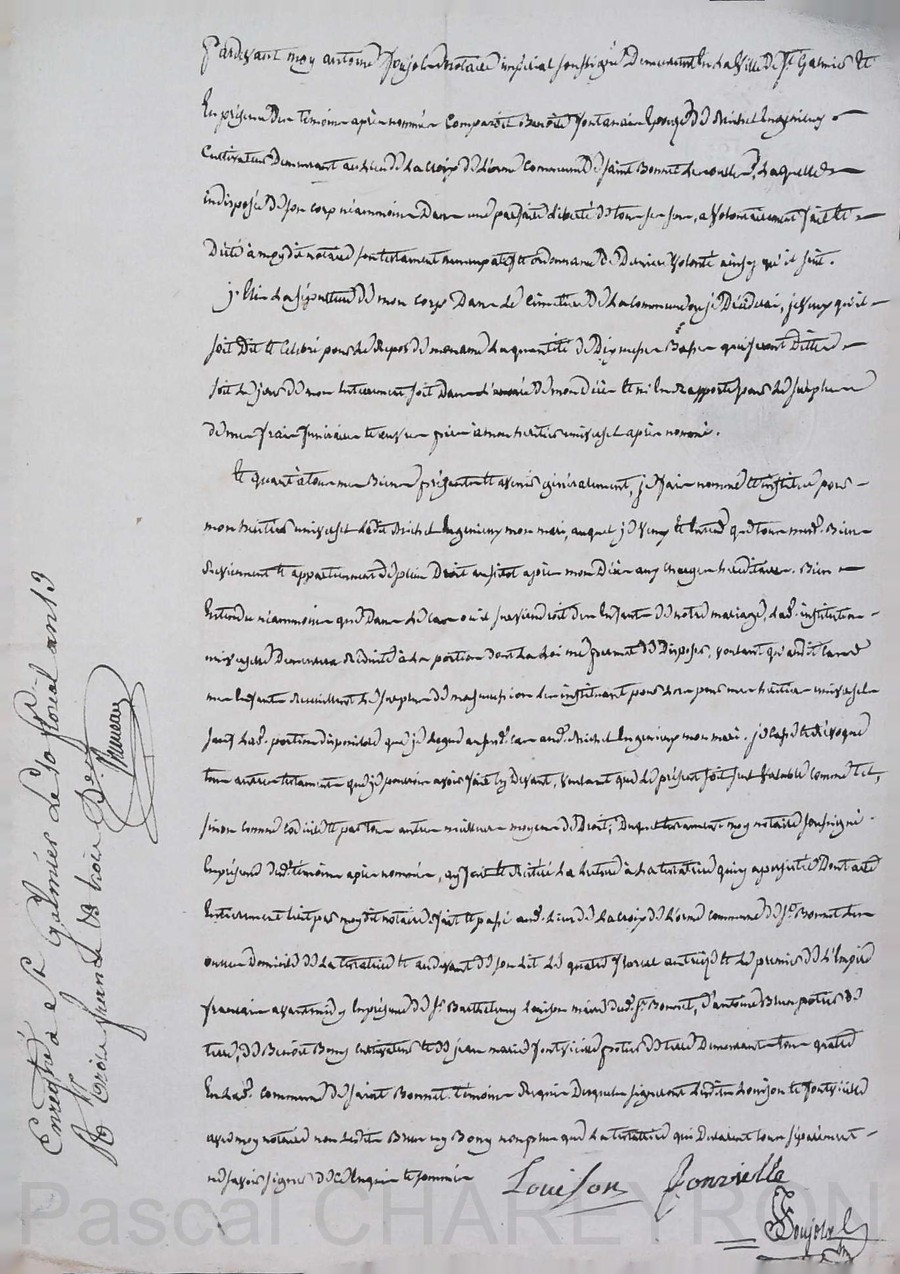 Pardevant moy antoine Poujol notaire imperial soussigné Demeurant En la Ville de St Galmier Et
En présence des temoins après nommés Comparoit Benoite Fontanais Epouze de Michel Ingenieux
Cultivateur Demeurant au Lieu de La Croix de L'orme Commune de saint Bonnet les oulles, Laquelle
indisposée de son corp néammoins Dans une parfaite Liberté de tous ses sens, a Volontairement fait et
Dicté a moydit notaire son testament nuncupatif et ordonnance de Dernière Volonté ainsy qu'il suit.
j'Elis La sépulture de mon corp Dans Le Cimetière de La commune ou je Décéderai, je Veux qu'il
soit Dit et Célébré pour Le Repos de mon ame La quantité de Dix messes Basses qui seront Dittes
soit Le jour de mon Enterrement soit Dans L'année de mon Décès Et m'En rapporte pour Le surplus
de mes frais funéraires et œuvres pies à mon heritier universel après nommé.
Et quant à tous mes Biens présents et avenir généralement, je fais nomme et institue pour
mon heritier universel Ledit Michel Ingenieux mon mari, auquel je Veux Et Entend que tous mesd. Biens
reviennent et appartiennent de plein Droit aussitot après mon Décès aux charges héréditaires. Bien
Entendu néammoins que Dans Le Cas ou il surviendroit des Enfants de notre mariage, Lad. institution
universelle Demeurera Réduite à La portion dont La Loi me permet de Disposer, voulant qu'audit Cas
mes Enfants Recueillent Le surplus de ma succession Les instituant pour Lors pour mes héritiers universels
sauf Lad. portion disponible que je Legue aud. cas aud. Michel Ingenieux mon mari. je Casse et Révoque
tous autres testaments que je pourrois avoir fait Cy Devant, Voulant que Le présent soit seul Valable comme tel,
sinon comme Codicille et par tous autres meilleurs moyens de Droit, Duquel testament moy notaire soussigné
En présence desd. temoins après nommés, ay fait et Réitéré La Lecture à La testatrice qui y a persisté Dont acte
Entièrement Ecrit par moydit notaire. fait et passé aud. Lieu de La Croix de L'orme commune de St Bonnet Les
oulles Domicile de La testatrice Et au devant de son Lit Le quatre floreal an treize et Le premier de L'Empire
français avant midy En présence de Sr Barthelemy Louison maire dud. St Bonnet, d'antoine Brun potier de
terre, de Benoit Bony cultivateur et de jean marie Fontvieille potier de terre Demeurant tous quatre
En Lad. commune de saint Bonnet temoins Requis Desquels signeront Lesdits Louison et Fontvieille
avec moy notaire non Lesdits Brun ny Bony non plus que La testatrice qui Declarent tous séparément
ne savoir signer de ce Enquis et sommés
Louison Fonvielle
Poujol
Enregistré a St Galmier Le 10 floreal an 13
Rç trois francs
Pascal CHAREYRON